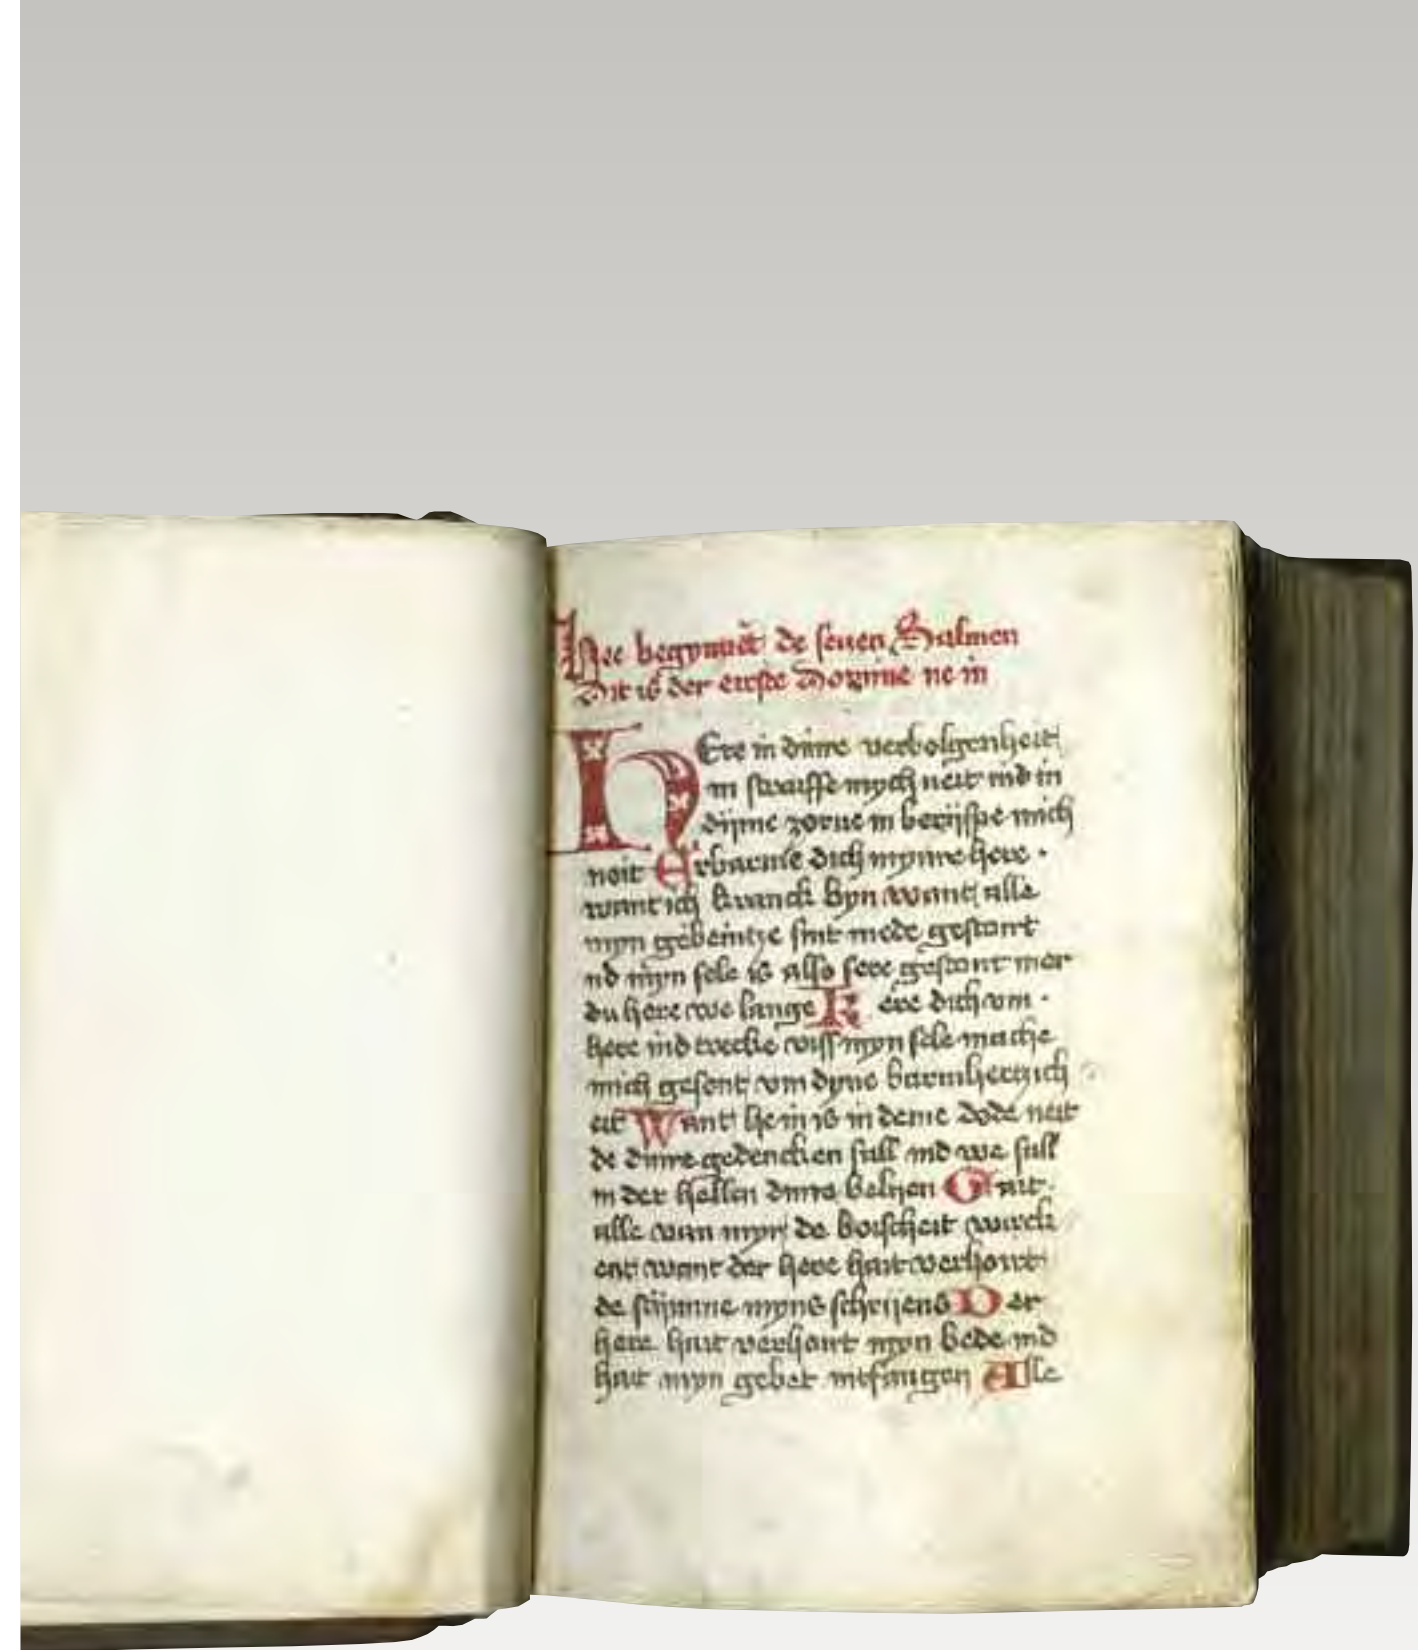 Hee begynnēt de seuen Salmen
Dit is der eirste Domine ne in
HEre in dinre verbolgenheit
in straiffe mych neit ind in
dijme zorne in berijspe mich
noit Erbarme dich mynre here ·
want ich kranck byn want alle
myn gebeintze sint mede gestort
nd myn sele is also sere gestort mer
du here we lange Kere dich vm ·
here ind trecke viss myn sele mache
mich gesont vm dyne barmhertzich
eit Want he in is in deme dode neit
de dinre gedencken sall ind we sall
in der hellen dinre belijen Gait
alle van myr de boisheit wirck
ent want der here hait verhort
de stijmme myns schrijens Der
here hait verhort myn bede ind
hait myn gebet intfangen Alle